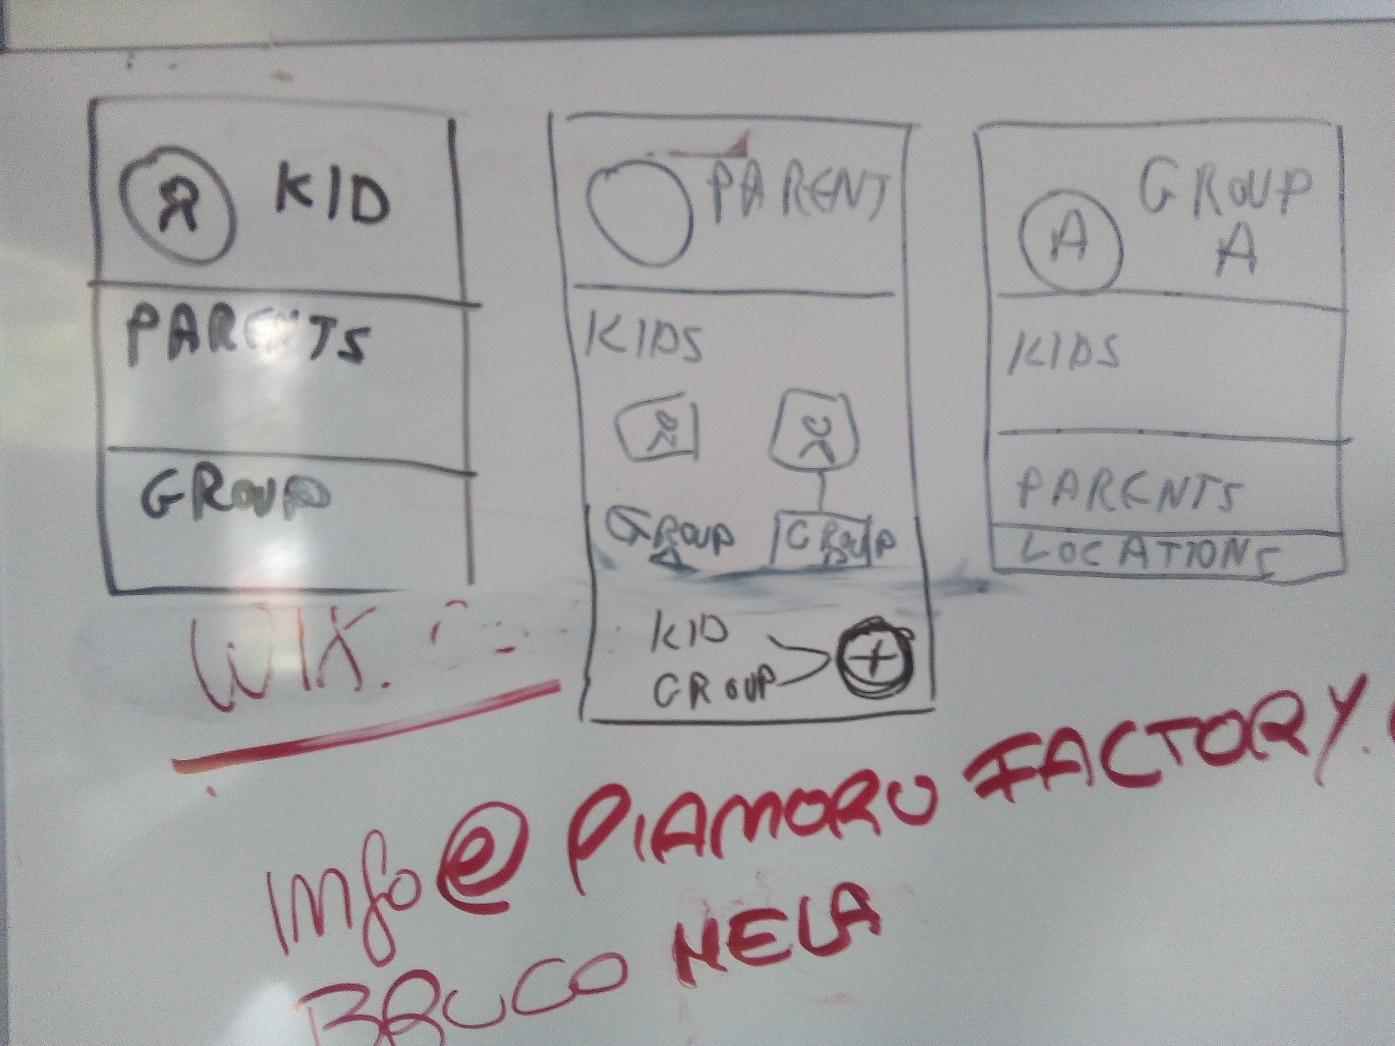 KID
PARENTS
GROUP
PARENT
KIDS
GROUP GROUP
KID
GROUP
+
A
GROUP
A
KIDS
PARENTS
LOCATIONS
WIX.
Info@PIAMORO FACTORY.
BRUCO MELA